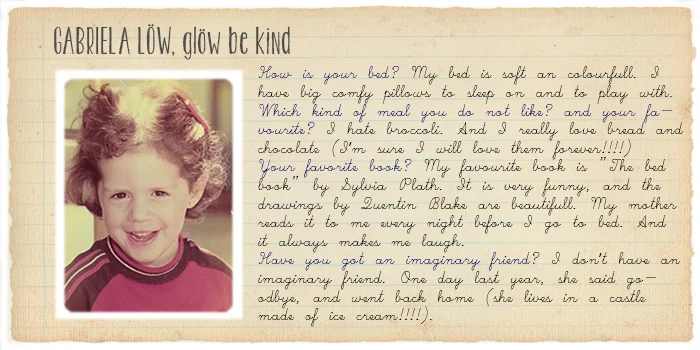 GABRIELA LÖW, glöw be kind
How is your bed? My bed is soft an colourfull. I
have big comfy pillows to sleep on and to play with.
Which kind of meal you do not like? and your fa-
vourite? I hate broccoli. And I really love bread and
chocolate (I'm sure I will love them forever!!!!)
Your favorite book? My favourite book is "The bed
book" by Sylvia Plath. It is very funny, and the
drawings by Quentin Blake are beautifull. My mother
reads it to me every night before I go to bed. And
it always makes me laugh.
Have you got an imaginary friend? I don't have an
imaginary friend. One day last year, she said go-
odbye, and went back home (she lives in a castle
made of ice cream!!!!).